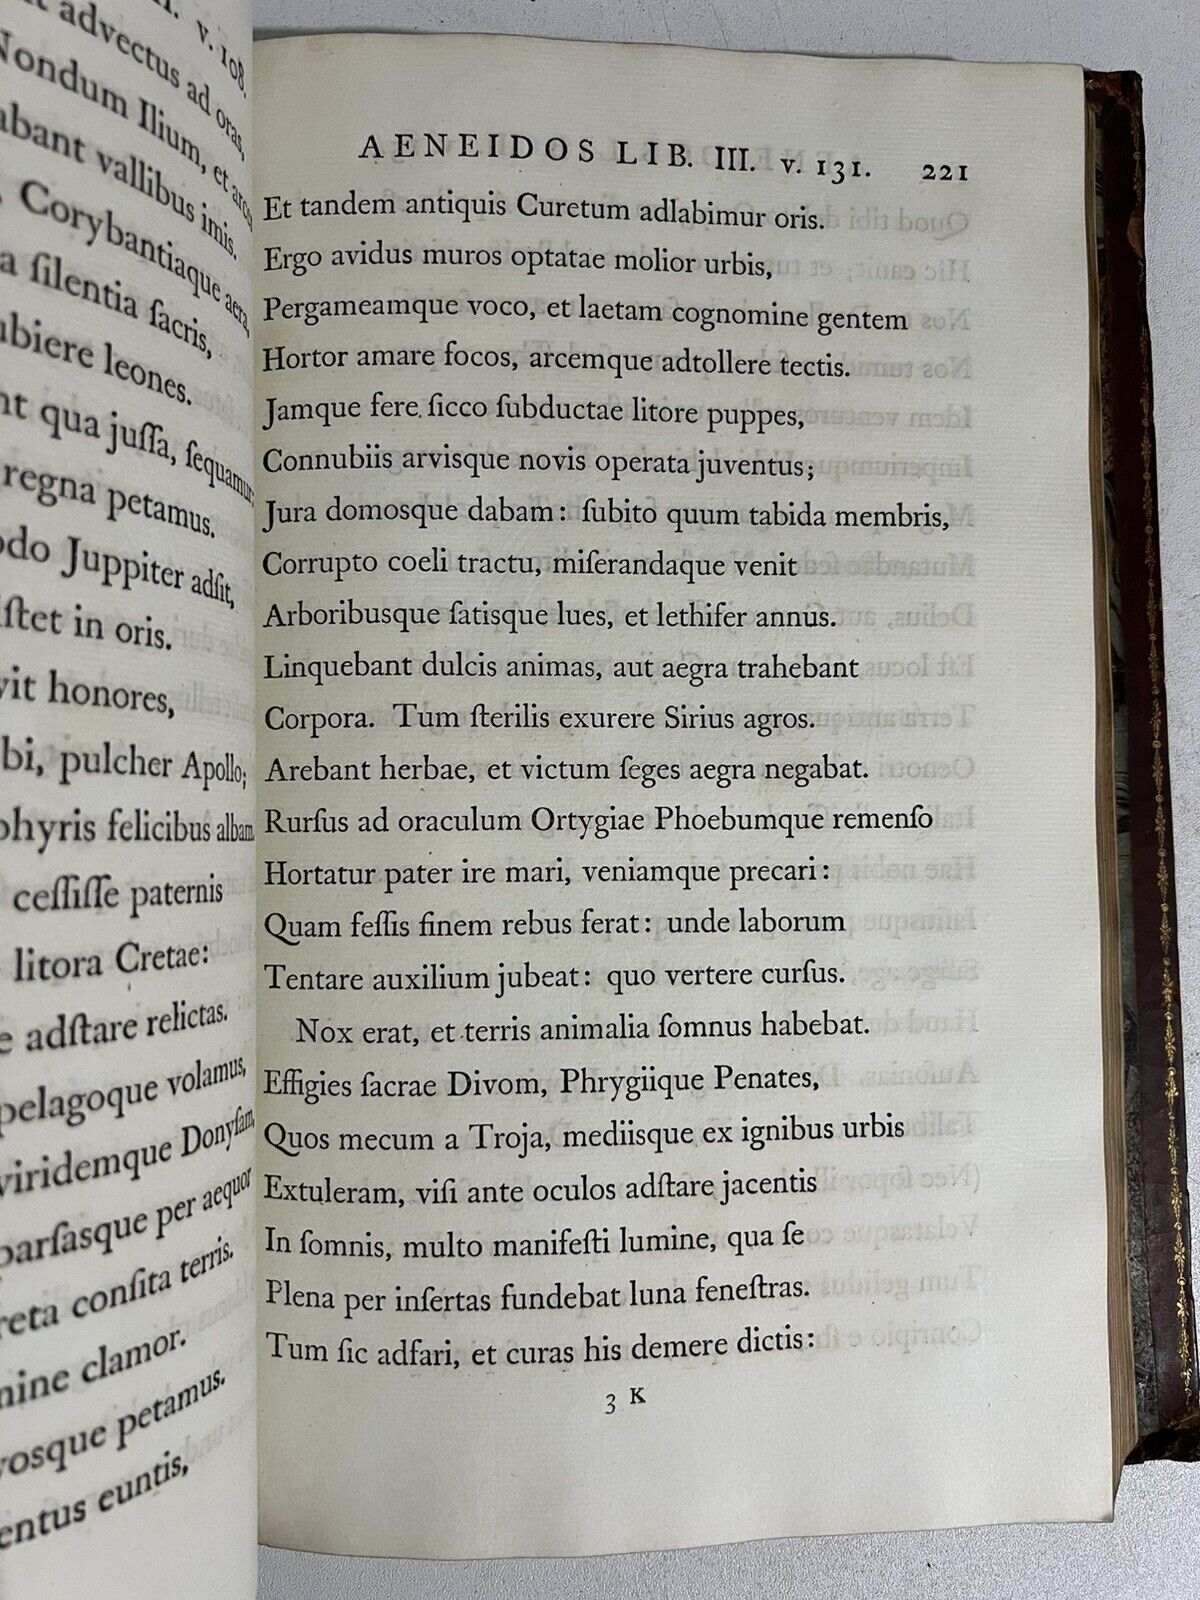 v. 108.
advectus ad oras,
Nondum Ilium, et arces
vallibus imis.
Corybantiaque aera,
ſilentia ſacris,
leones.
qua juſſa, ſequamur:
regna petamus.
Juppiter adſit,
in oris.
honores,
pulcher Apollo;
felicibus albam
ceſſiſſe paternis
litora Cretae:
adſtare relictas.
pelagoque volamus,
viridemque Donyſam,
per aequor
conſita terris.
clamor.
petamus.
euntis,
AENEIDOS LIB. III. v. 131. 221
Et tandem antiquis Curetum adlabimur oris.
Ergo avidus muros optatae molior urbis,
Pergameamque voco, et laetam cognomine gentem
Hortor amare focos, arcemque adtollere tectis.
Jamque fere ſicco ſubductae litore puppes,
Connubiis arvisque novis operata juventus;
Jura domosque dabam: ſubito quum tabida membris,
Corrupto coeli tractu, miſerandaque venit
Arboribusque ſatisque lues, et lethifer annus.
Linquebant dulcis animas, aut aegra trahebant
Corpora. Tum ſterilis exurere Sirius agros.
Arebant herbae, et victum ſeges aegra negabat.
Rurſus ad oraculum Ortygiae Phoebumque remenſo
Hortatur pater ire mari, veniamque precari:
Quam feſſis finem rebus ferat: unde laborum
Tentare auxilium jubeat: quo vertere curſus.
Nox erat, et terris animalia ſomnus habebat.
Effigies ſacrae Divom, Phrygiique Penates,
Quos mecum a Troja, mediisque ex ignibus urbis
Extuleram, viſi ante oculos adſtare jacentis
In ſomnis, multo manifeſti lumine, qua ſe
Plena per inſertas fundebat luna feneſtras.
Tum ſic adfari, et curas his demere dictis:
3 K